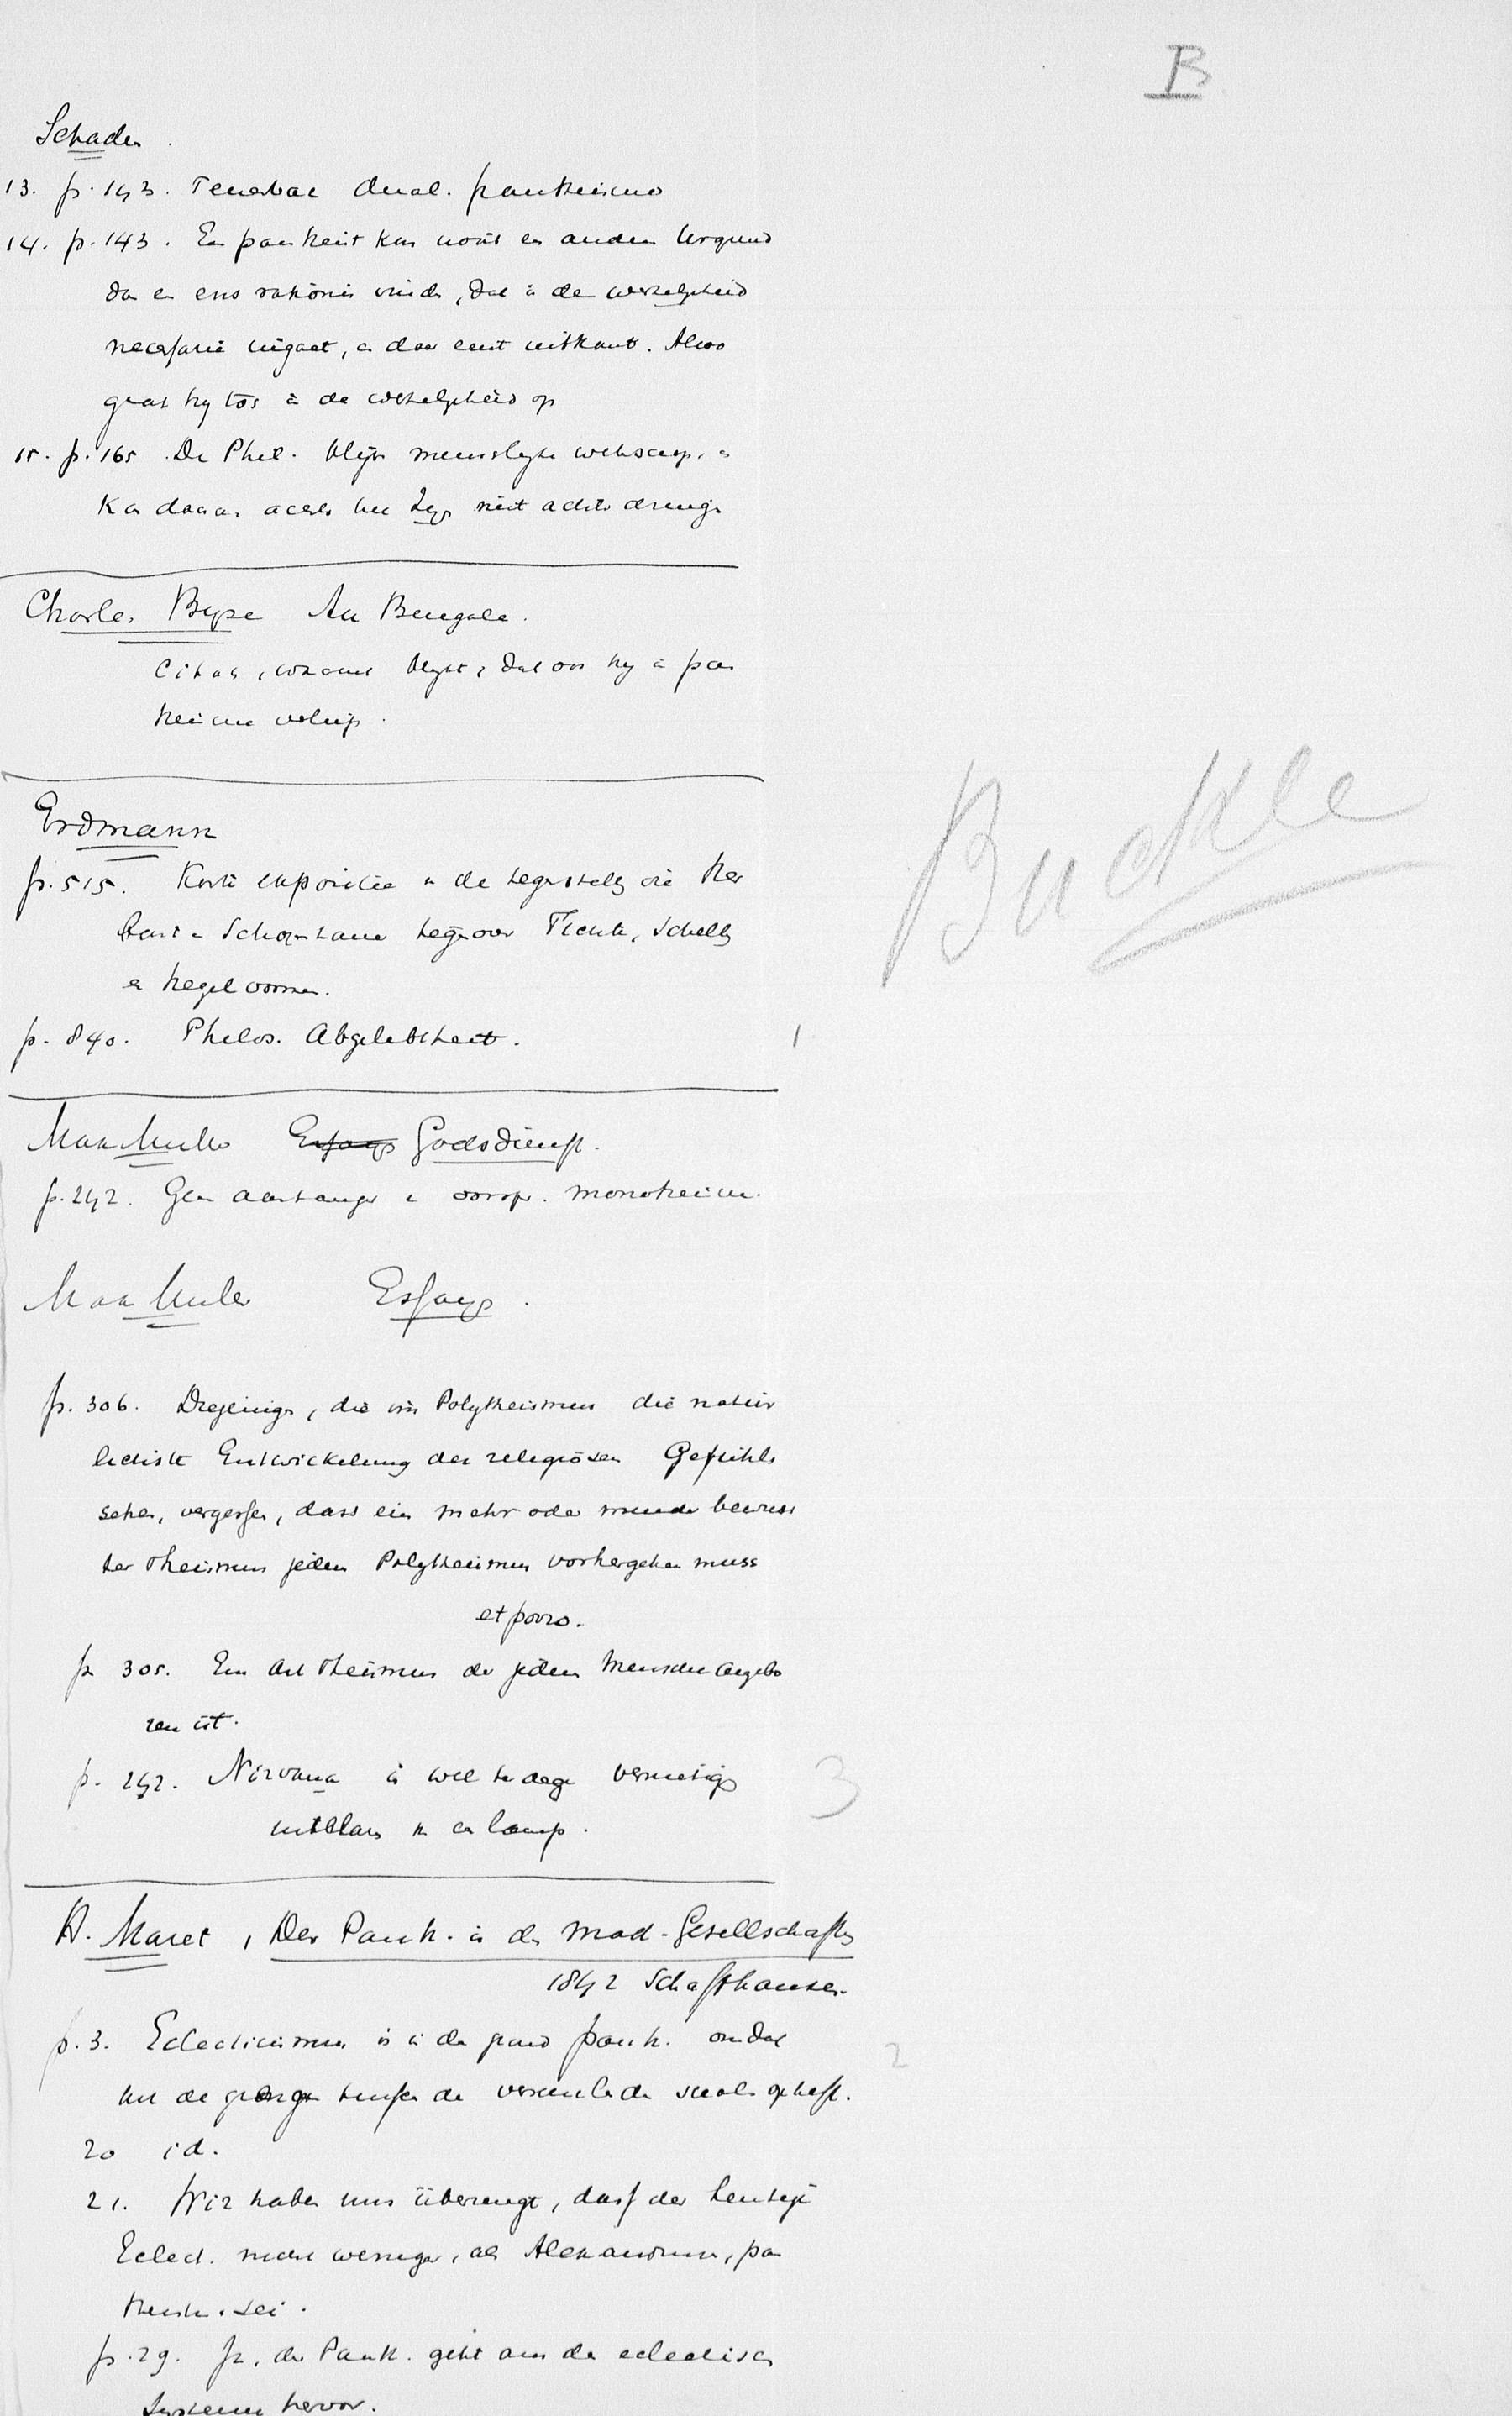 B
Schaden.
13. p. 143. dual. pantheismo
14. p. 143. Een pantheist kan nooit en anden Urgrund
dan en ens rationis vinde, dat in de werkelykheid
necessarie ingaat, en daar eerst uitkomt. Alzoo
gaat hy los in de werkelykheid op
15. p. 165 De Phil. blijft menschelyke wetenscap, en
kan achter het Zijn niet achter dringe
Charles Byse Au Bengale.
Citaat, blykt, dat ook hy in pan
theisme
Erdmann
p. 515. Korte expositie de tegenstelling die Her
bart en Schopenhauer tegenover Fichte, Schelling
en Hegel vormen.
p. 840. Philos. Abgelebtheit.
1
Buckle
Max Muller Essays Godsdienst.
p. 242. Geen aanhanger v oorspr. monotheisme.
Max Muller Essays.
p. 306. Diejenigen, die im Polytheismus die natür
lichste Entwickelung der religiösen Gefühls
sehen, vergessen, dass ein mehr oder minder bewuss
ter Theismus jedem Polytheismus vorhergehen muss
et porro.
p 305. Ein Art Theismus der jedem Menschen angebo
ren ist.
p. 242. Nirvana is wel te dege vernietiging
uitblazen v en lamp.
3
H. Maret, Der Panth. in der mod. Gesellschaften
1842 Schaffhausen.
p. 3. Eclecticismus is in de grond panth. omdat
het de grenzen tussen de opheft.
2
20 id.
21. Wir haben uns überzeugt, dass der heutige
Eclect. nicht weniger, als Alexandrinus, pan
theist. sei.
p. 29. fr. der Panth. geht aus der eclectischen
Systemen hervor.